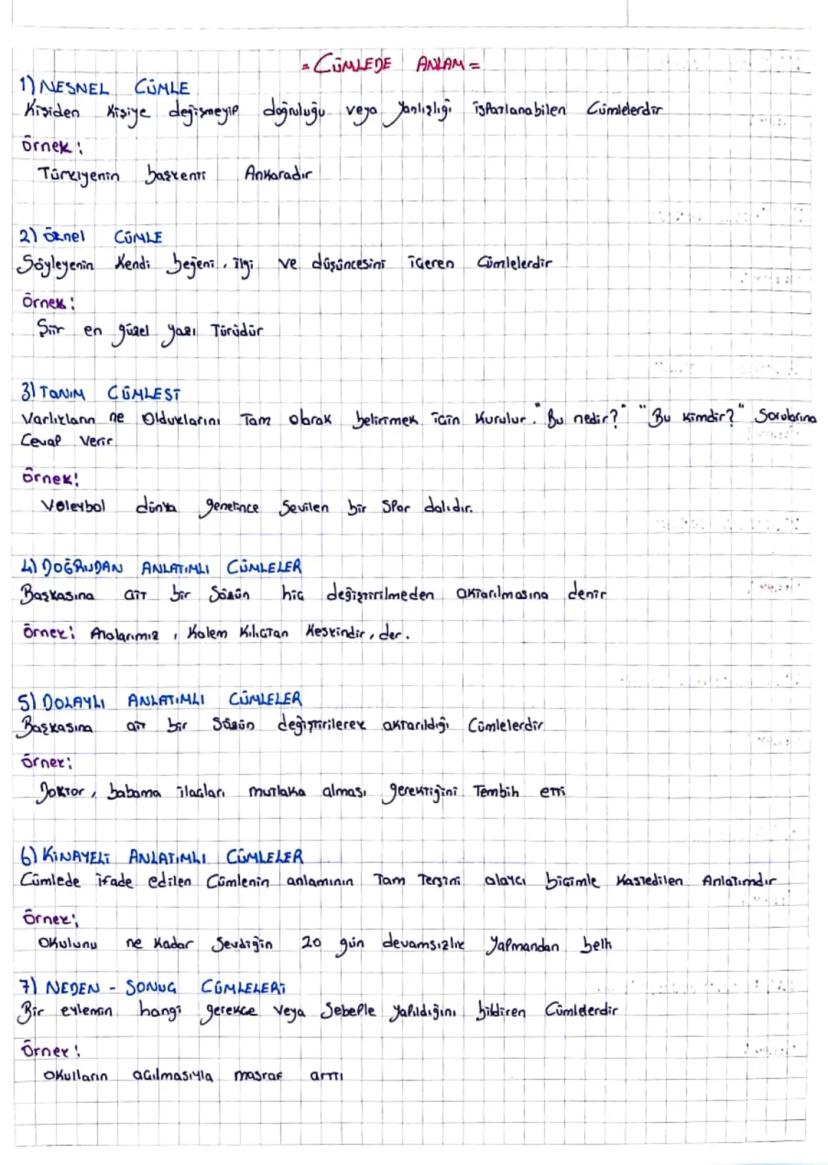 = CÜMLEDE ANLAM =
1) NESNEL CÜMLE
Kişiden kişiye değişmeyip doğruluğu veya yanlışlığı ispatlanabilen Cümlelerdir
Örnek:
Türkiyenin başkenti Ankaradır
2) Öznel CÜMLE
Söyleyenin kendi beğeni, ilgi ve düşüncesini içeren Cümlelerdir
Örnek:
Şiir en güzel yazı Türüdür
3) TANIM CÜMLESİ
Varlıkların ne Olduklarını Tam olarak belirtmek için Kurulur. "Bu nedir?" "Bu kimdir?" Sorularına
Cevap Verir
Örnek:
Voleybol dünya genelince Sevilen bir Spor dalıdır.
4) DOĞRUDAN ANLATIMLI CÜMLELER
Başkasına ait bir Sözün hiç değiştirilmeden aktarılmasına denir
Örnek: Atalarımız, Kalem Kılıçtan Keskindir, der.
5) DOLAYLI ANLATIMLI CÜMLELER
Başkasına ait bir Sözün değiştirilerek aktarıldığı Cümlelerdir
Örnek:
Doktor, babama ilaçları mutlaka alması gerektiğini Tembih etti
6) KİNAYELİ ANLATIMLI CÜMLELER
Cümlede ifade edilen Cümlenin anlamının Tam Tersini alaycı biçimle Kastedilen Anlatımdır
Örnek:
Okulunu ne kadar Sevdiğin 20 gün devamsızlık Yapmandan belli
7) NEDEN - SONUÇ CÜMLELERİ
Bir eylemin hangi gerekçe veya Sebeple yapıldığını bildiren Cümlelerdir
Örnek:
Okulların açılmasıyla masraf arttı